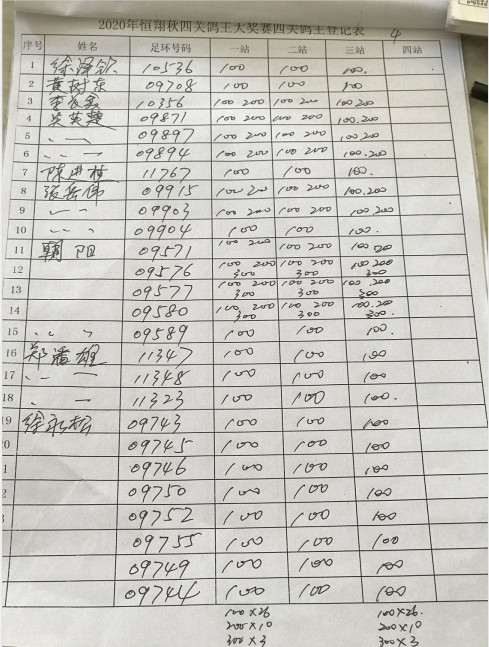 2020年恒翔秋四关鸽王大奖赛四关鸽王登记表 4
序号 姓名 足环号码 一站 二站 三站 四站
1 徐泽钦 10536 100 100 100.
2 黄树东 09708 100 100 100
3 10356 100 200 100 200 100.200
4 09871 100 200 100 200 100.200
5 〃 09897 100 200 100 200 100.200
6 〃 09894 100 200 100 200 100.200
7 陈进桂 11767 100 100 100.
8 张岳伟 09915 100 200 100 200 100.200
9 〃 09903 100 200 100 200 100 200
10 〃 09904 100 100 100.
11 朝阳 09571 100 200 100 200 100 200
12 09576 100 200 300 100 200 300 100.200 300
13 09577 100 200 300 100 200 300 100.200 300
14 09580 100 200 300 100 200 300 100.200 300.
15 〃 09589 100 100 100.
16 郑潘雄 11347 100 100 100
17 〃 11348 100 100 100
18 〃 11323 100 100 100.
19 徐永松 09743 100 100 100
20 09745 100 100 100
1 09746 100 100 100
2 09750 100 100 100
3 09752 100 100 100
09755 100 100 100
09749 100 100 100
09744 100 100 100
100×26 100×26.
200×10 200×10
300×3 300×3